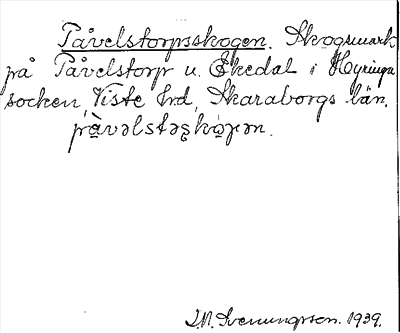 Påvelstorpsskogen. Skogsmark
på Påvelstorp u. Ekedal i Hyringa
socken, Viste hd, Skaraborgs län.
pàvəlstəʂkòɡən.
J.N. Svenungsson. 1939.